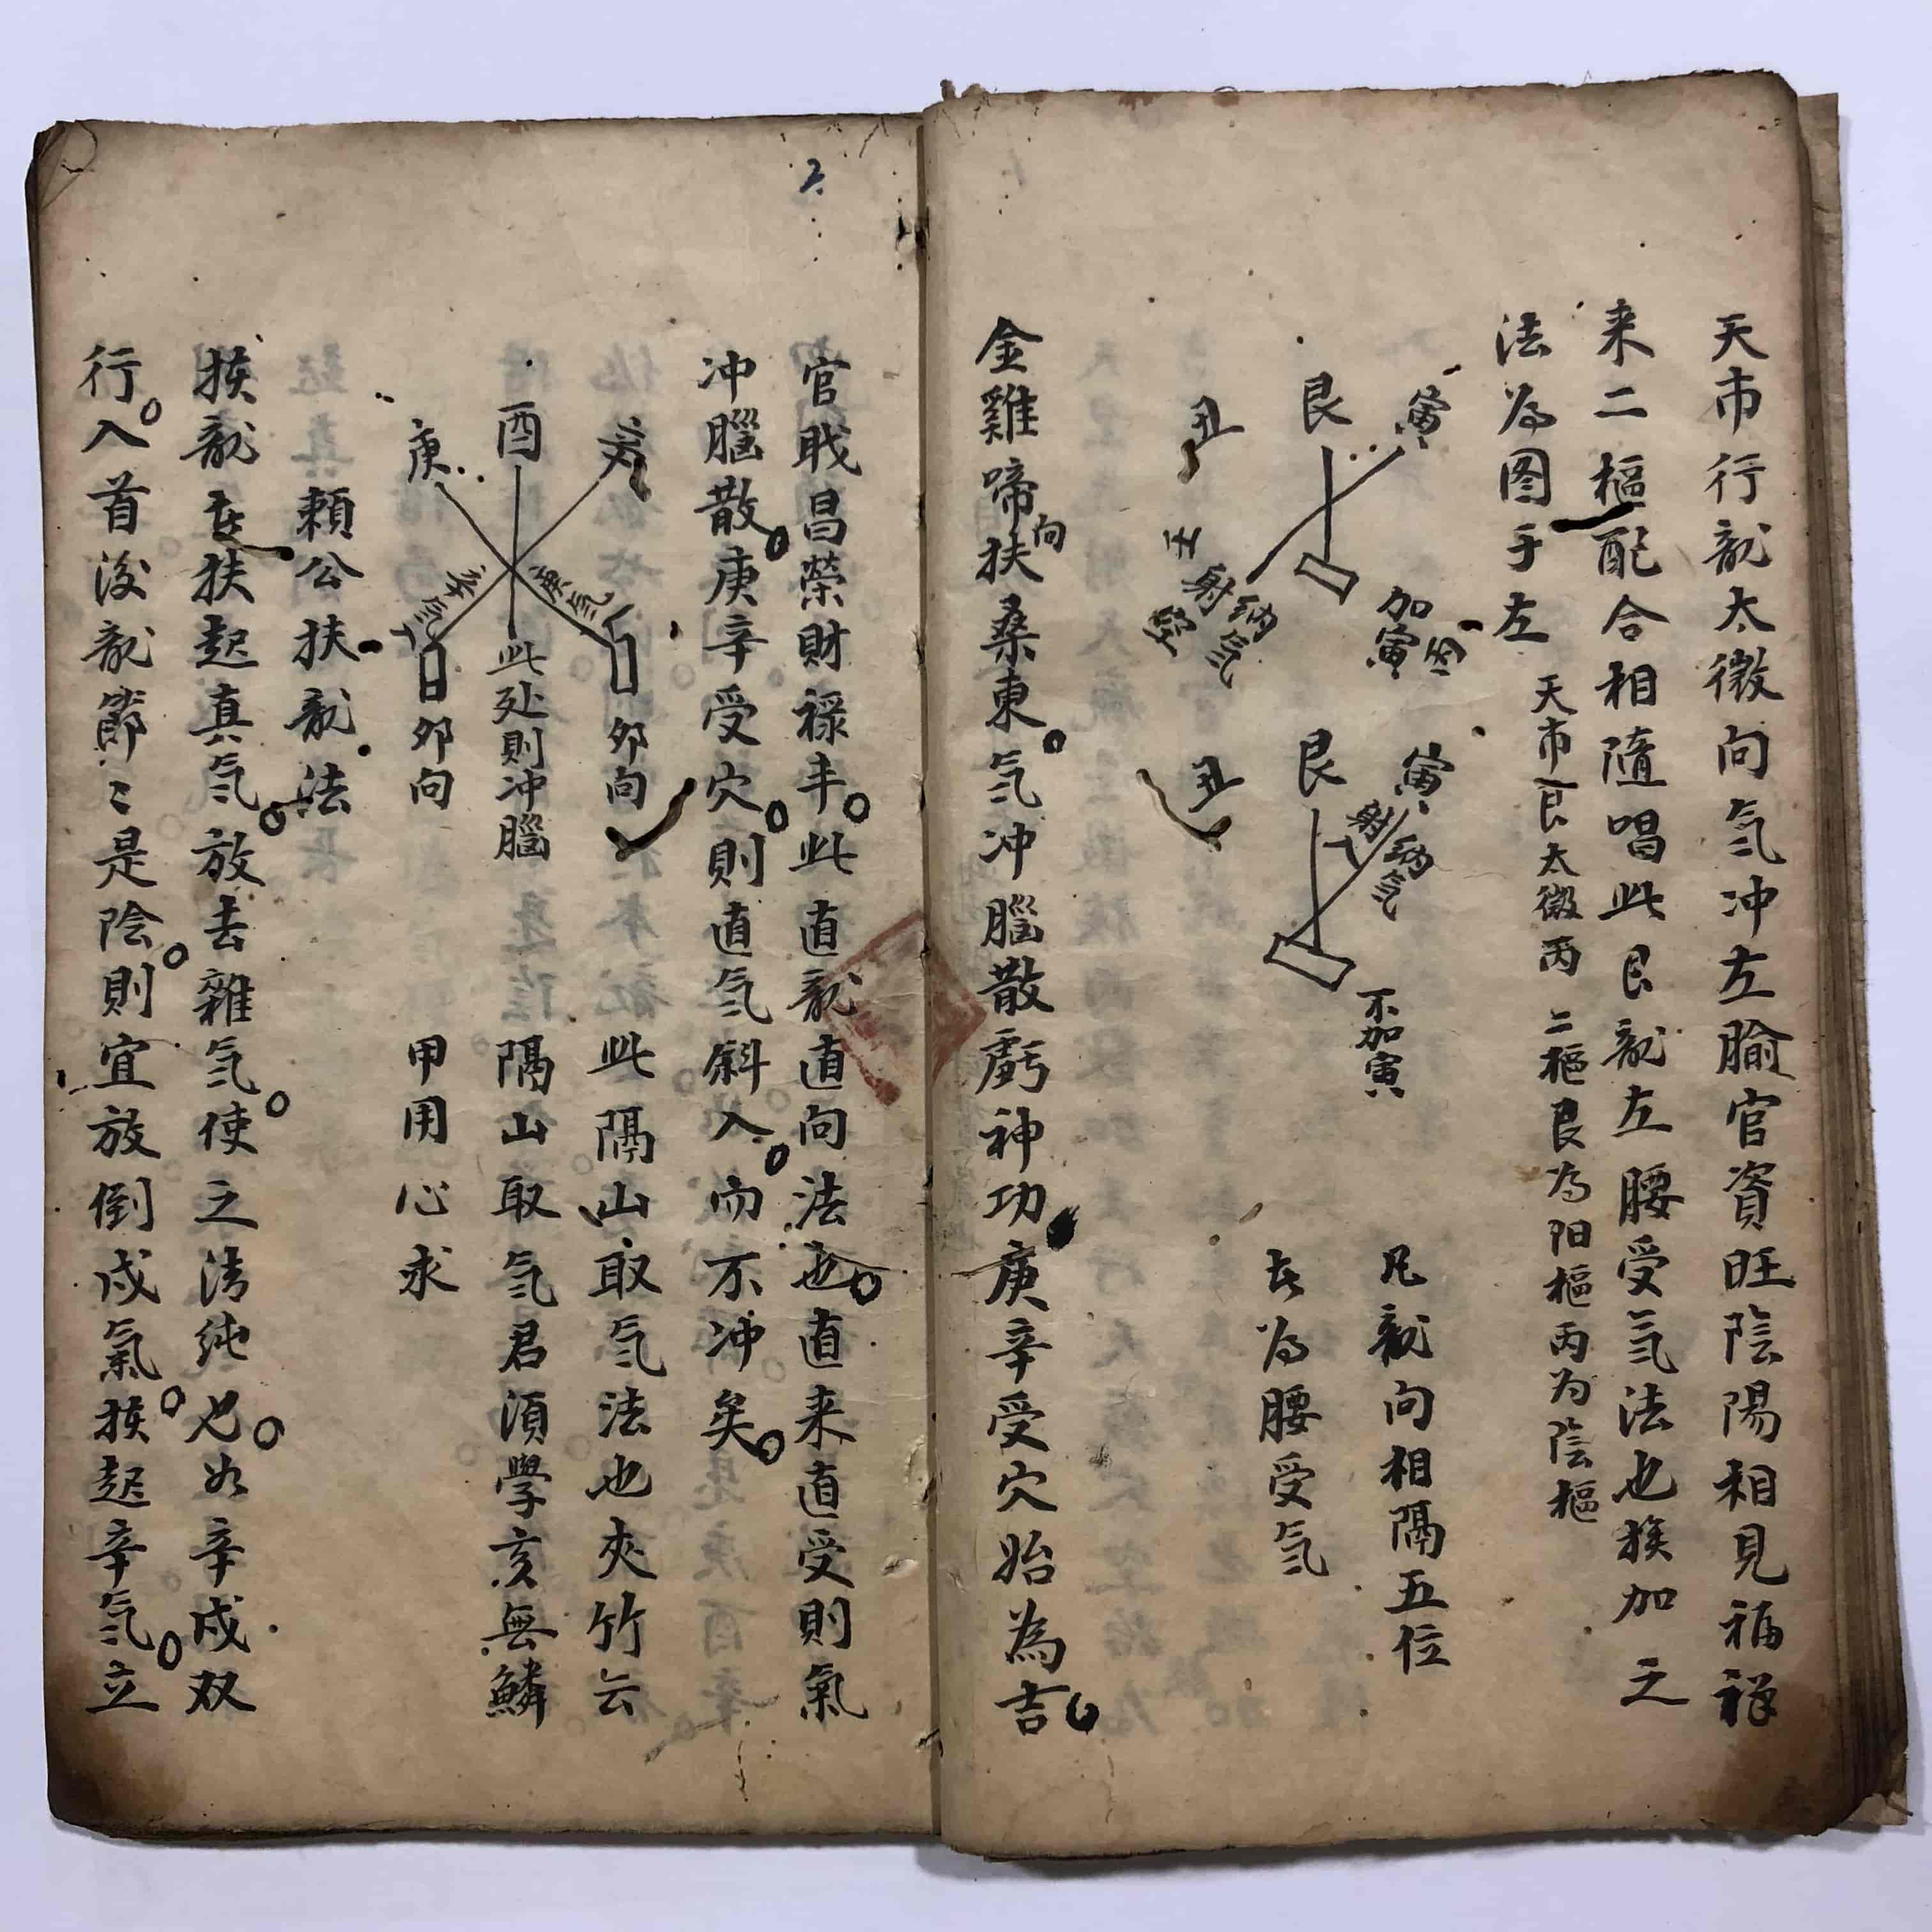 天市行龍太微向氣冲左腧官資旺陰陽相見福祿
来二樞配合相隨唱此艮龍左腰受氣法也挨加之
法为图于左
天市艮太微丙 二樞艮为阳樞丙为陰樞
寅
艮
丑
加寅
纳氣
射
寅
艮
丑
纳氣
射
不加寅
凡龍向相隔五位
去为腰受氣
金雞啼向扶桑東氣冲腦散虧神功庚辛受穴始為吉
2
官戝昌榮財祿丰此直龍直向法也直来直受則氣
冲腦散庚辛受穴則直氣斜入而不冲矣
酉
庚
庚氣
辛氣
夘向
此处則冲腦
夘向
此隔山取氣法也夾竹云
隔山取氣君須學亥無鱗
甲用心求
賴公扶龍法
挨龍去扶起真氣放去雜氣使之清纯也如辛戍双
行入首後龍節〻是陰則宜放倒戍氣挨起辛氣立